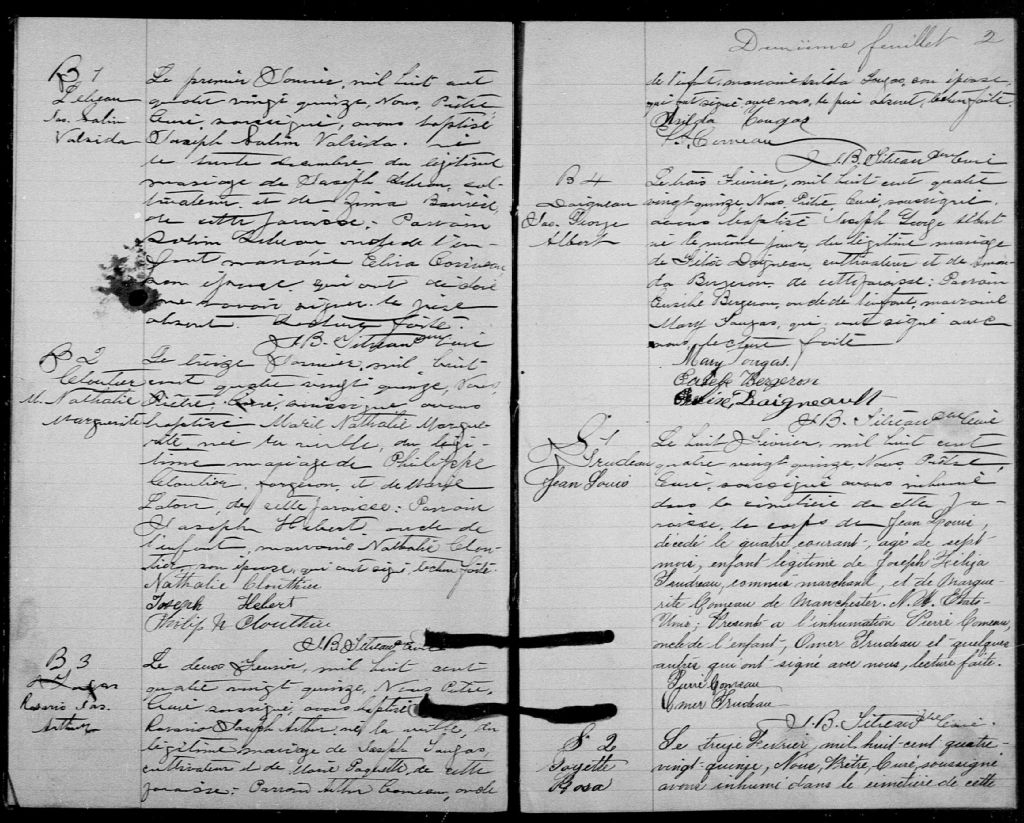 B 1
Lebeau
Jos. Salim
Valrida
Le premier Janvier, mil huit cent
quatre vingt quinze, Nous, Prêtre
Curé, soussigné, avons baptisé
Joseph Salim Valrida. né
le trente décembre du légitime
mariage de Joseph Lebeau, cul-
tivateur, et de
de cette paroisse: Parrain
Salim Lebeau oncle de l'en-
fant marraine Eliza
son épouse, qui ont dé
savoir signer. le père
absent. Lecture faite.
J.B. Sitreau Ptre Curé
B 2
Cloutier
M. Nathalie
Marguerite
Le treize Janvier, mil huit
cent quatre vingt quinze, Nous
Prêtre, Curé, soussigné, avons
baptisé Marie Nathalie Margue-
rite née la veille, du légi-
time mariage de Philippe
Cloutier, forgeron, et de Marie
Latour, de cette paroisse: Parrain
Joseph Hebert, oncle de
l'enfant, marraine Nathalie Clou-
tier, son épouse, qui ont signé, lecture faite
Nathalie Clouthier
Joseph Hebert
Philip N Clouthier
J.B. Sitreau Ptre Curé
B 3
Rosario Jos.
Arthur
Le deux Fevrier, mil huit cent
quatre vingt quinze, Nous, Prêtre,
Curé soussigné, avons baptisé
Rosario Joseph Arthur, né la veille, du
légitime mariage de Joseph Tougas,
cultivateur et de Marie Paquette, de cette
paroisse: Parrain Arthur Comeau, oncle
Deuxième feuillet 2
de l'enft. marraine Exilda Tougas, son épouse
qui ont signé avec nous, le père absent, lecture faite
Exilda Tougas
Comeau
J.B. Sitreau Ptre Curé
B 4
Daigneau
Jos. George
Albert
Le trois Février, mil huit cent quatre
vingt quinze Nous, Prêtre, Curé, soussigné,
avons baptisé Joseph George Albert
né le même jour, du légitime mariage
de Félix Daigneau, cultivateur et de
Bergeron, de cette paroisse: Parrain
Bergeron, oncle de l'enfant, marraine
Mary Tougas, qui ont signé avec
nous, lecture faite
Mary Tougas
Bergeron
Felix Daigneault
J.B. Sitreau Ptre Curé
S 1
Trudeau
Jean Louis
Le huit Février, mil huit cent
quatre vingt quinze, Nous, Prêtre,
Curé, soussigné avons inhumé
dans le cimetière de cette pa-
roisse, le corps de Jean Louis,
décédé le quatre courant, agé de sept
mois, enfant légitime de Joseph
Trudeau, commis marchand, et de Margue-
rite Comeau de Manchester. N.H. Etats-
Unis; Présent a l'inhumation Pierre Comeau,
oncle de l'enfant, Omer Trudeau et quelques
autres qui ont signé avec nous, lecture faite.
Pierre Comeau
Omer Trudeau
J.B. Sitreau Ptre Curé.
S 2
Goyette
Rosa
Le treize Fevrier, mil huit cent quatre-
vingt-quinze, Nous, Prêtre, Curé, soussigné
avons inhumé dans le cimetière de cette